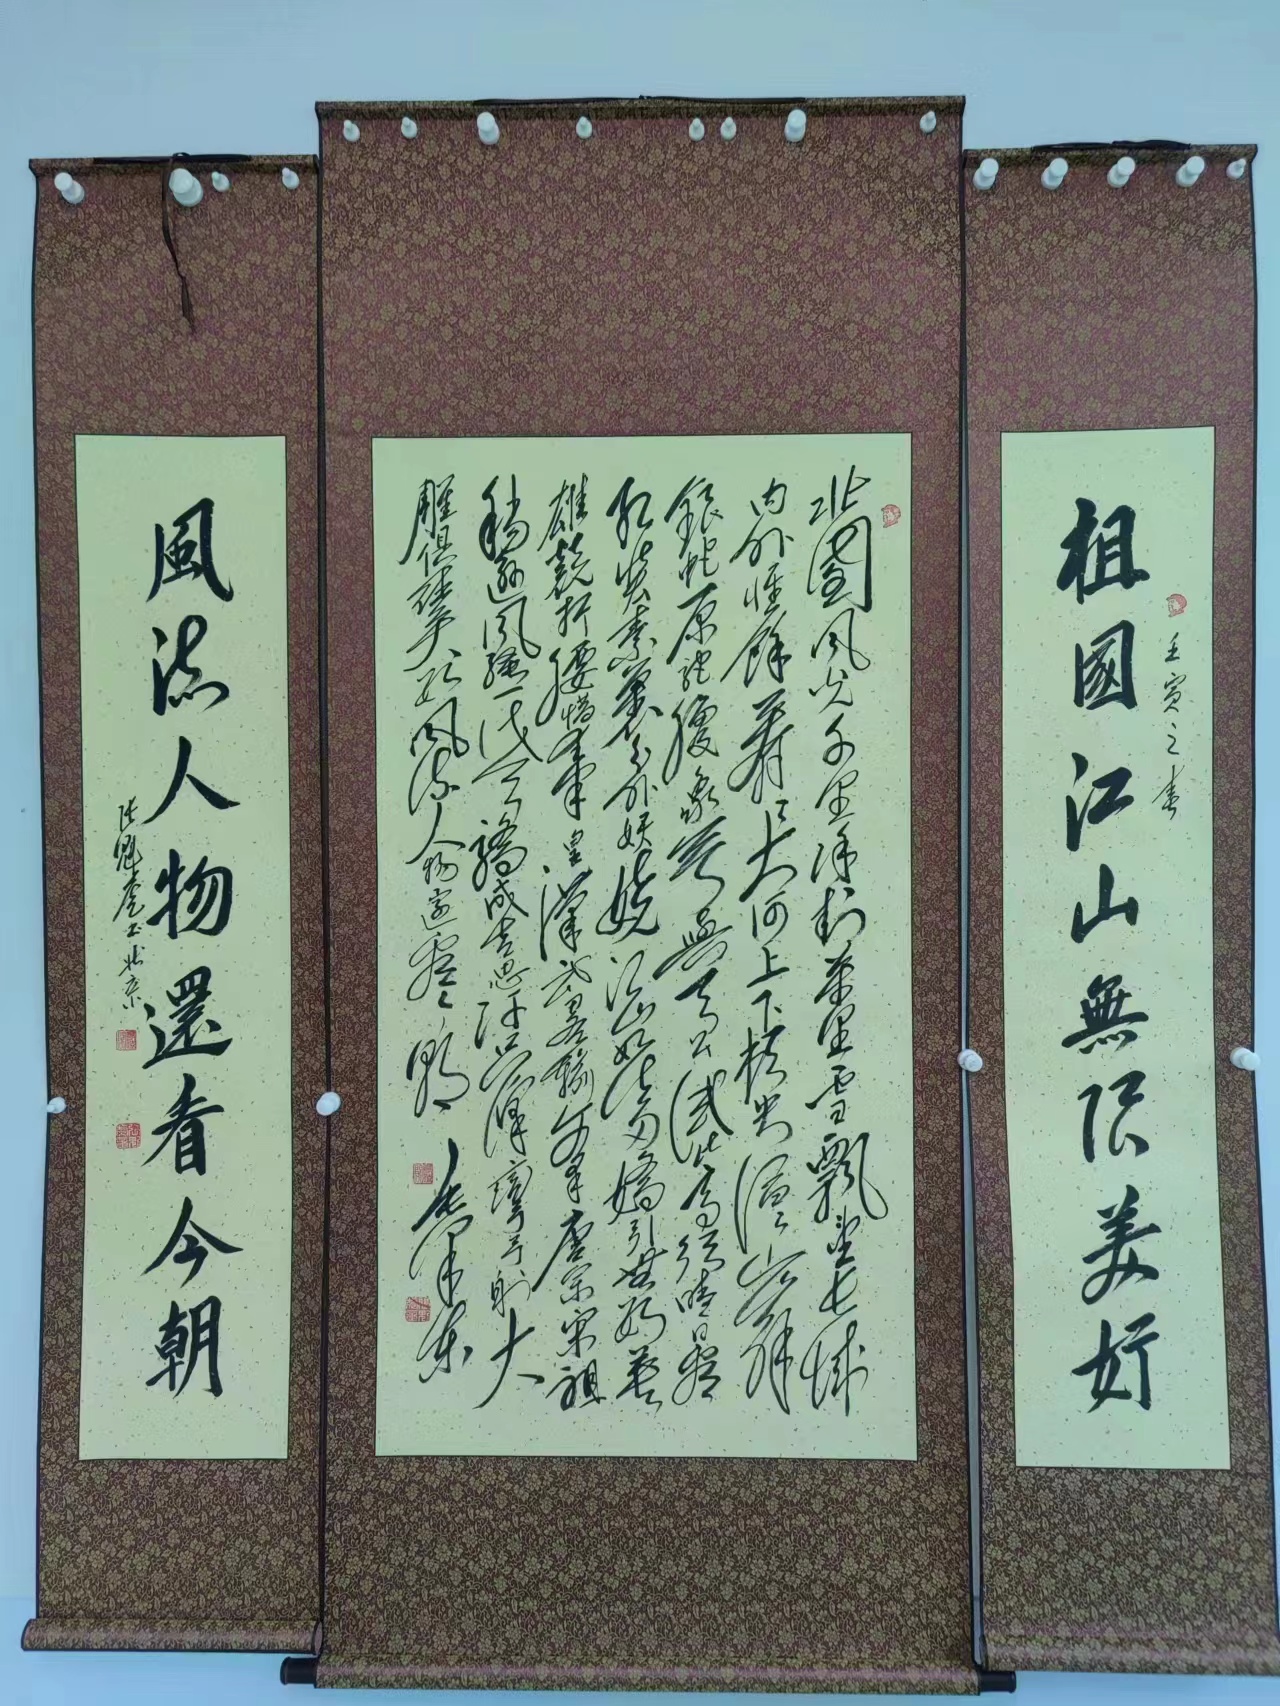 祖國江山無限美好
壬寅之春
北國風光千里冰封萬里雪飄望長城
内外惟餘莽莽大河上下頓失滔滔山舞
銀蛇原馳臘象欲與天公試比高須晴日看
紅裝素裹分外妖嬈江山如此多嬌引無數英
雄競折腰惜秦皇漢武略輸文采唐宗宋祖
稍遜風騷一代天驕成吉思汗只識彎弓射大
雕俱往矣數風流人物還看今朝
毛澤東
風流人物還看今朝